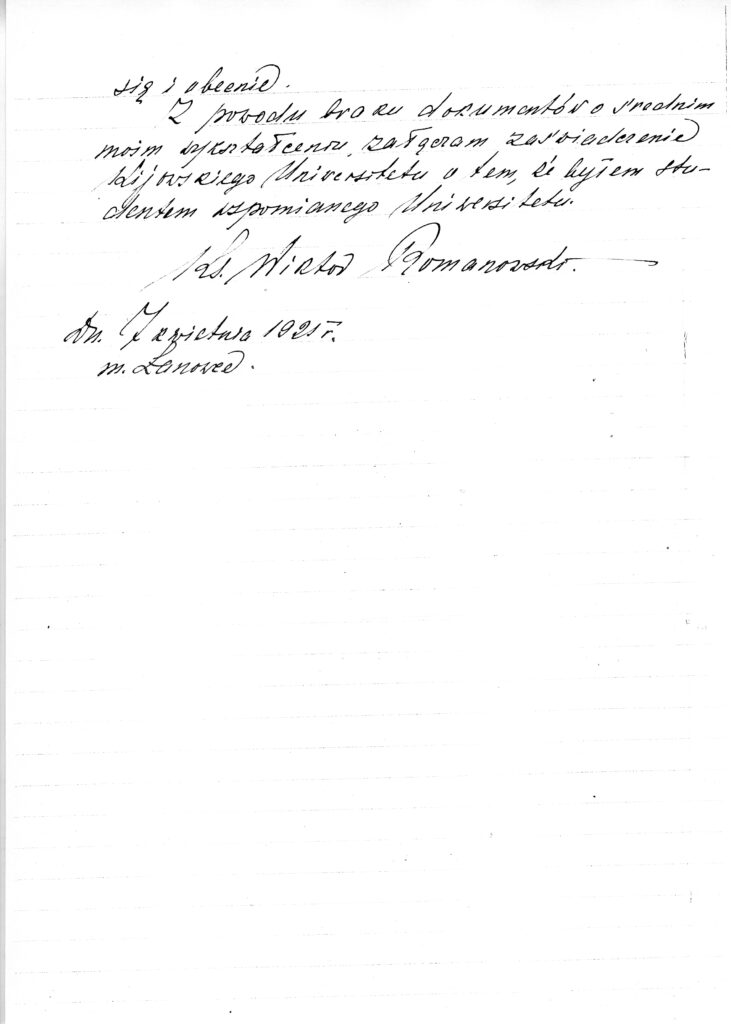 się i obecnie.
Z powodu braku dokumentów o średnim
moim wykształceniu, załączam zaświadczenie
Kijowskiego Uniwersitetu o tem, że byłem stu-
dentem wspomianego Uniwersitetu.
Ks. Wiktor Romanowski.
Dn. 7 kwietnia 1921 r.
m. Łanowce.